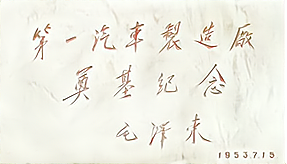 第一汽車製造廠
奠基紀念
毛泽东
1953.7.15